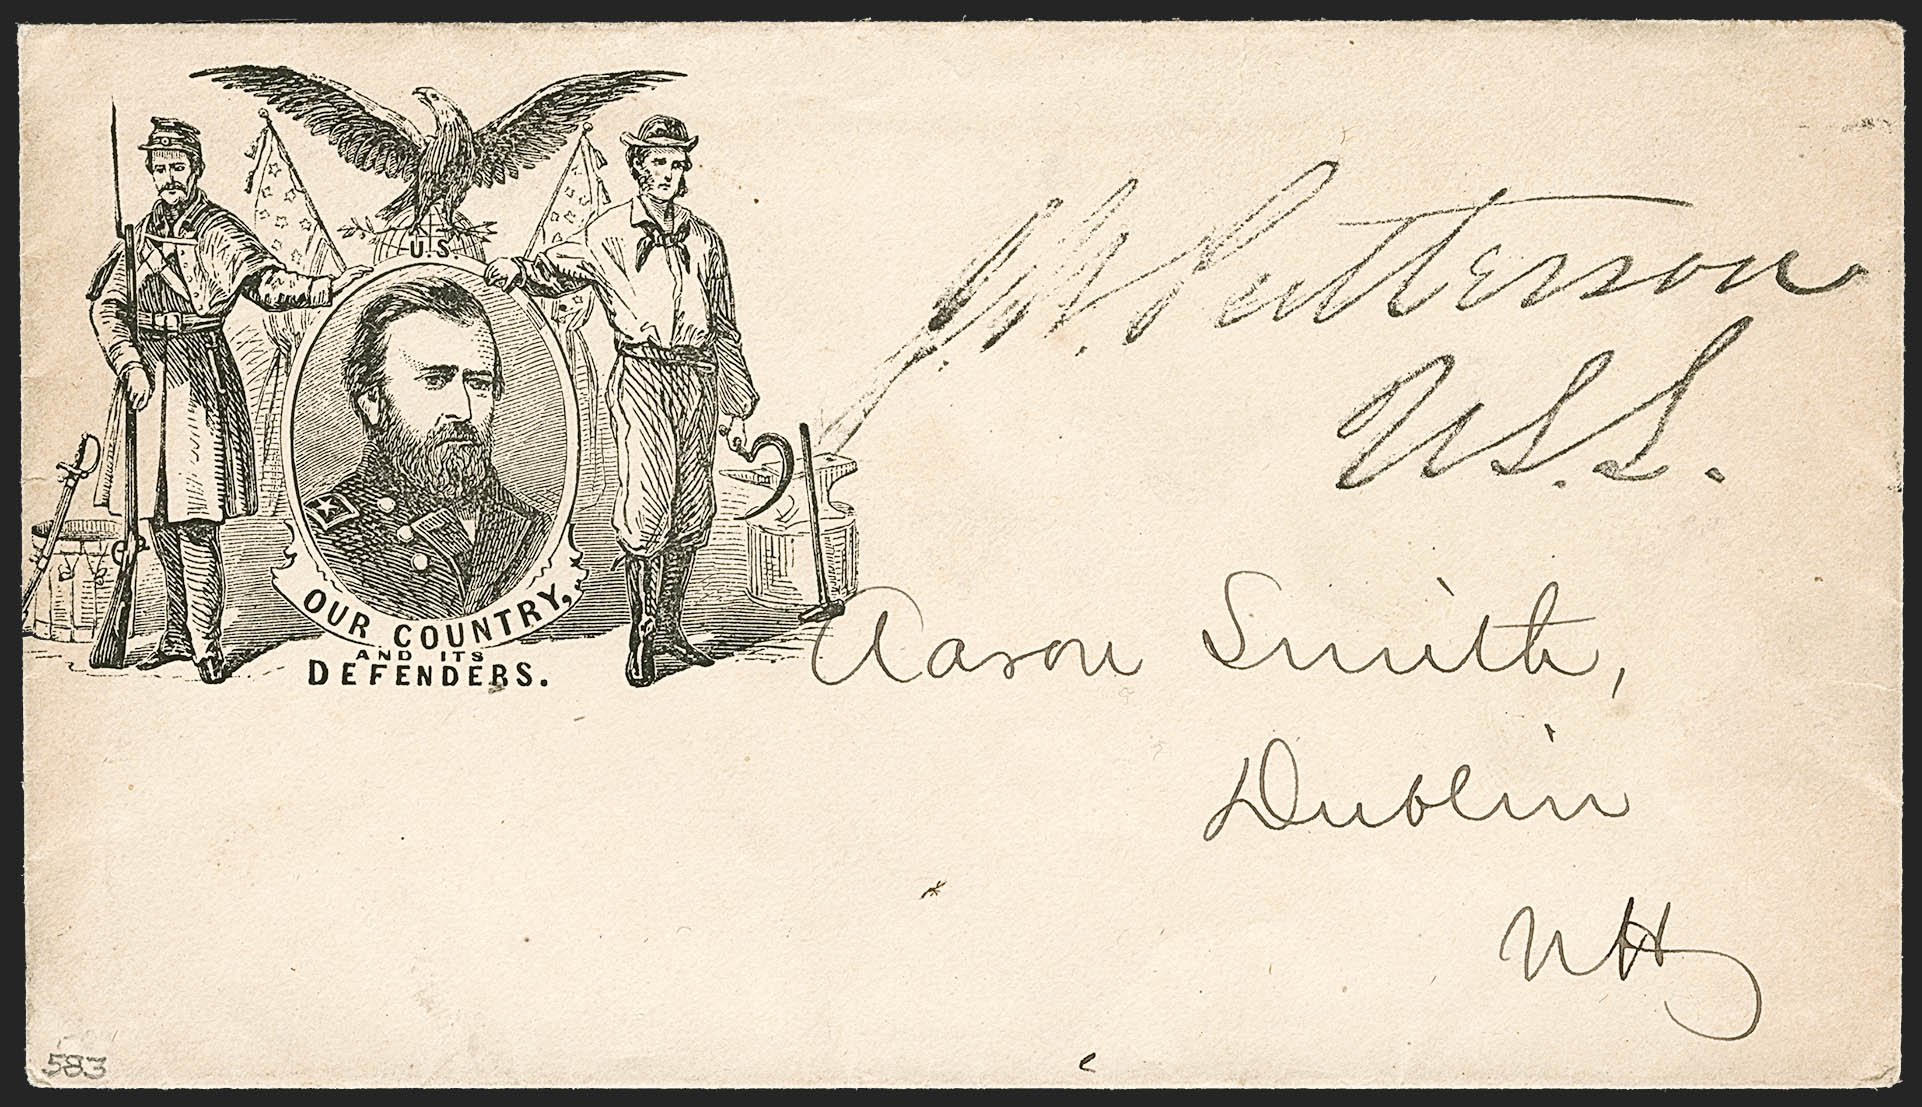 U.S.
OUR COUNTRY,
AND ITS
DEFENDERS.
J. W. Patterson
U.S.S.
Aaron Smith,
Dublin
NH
583